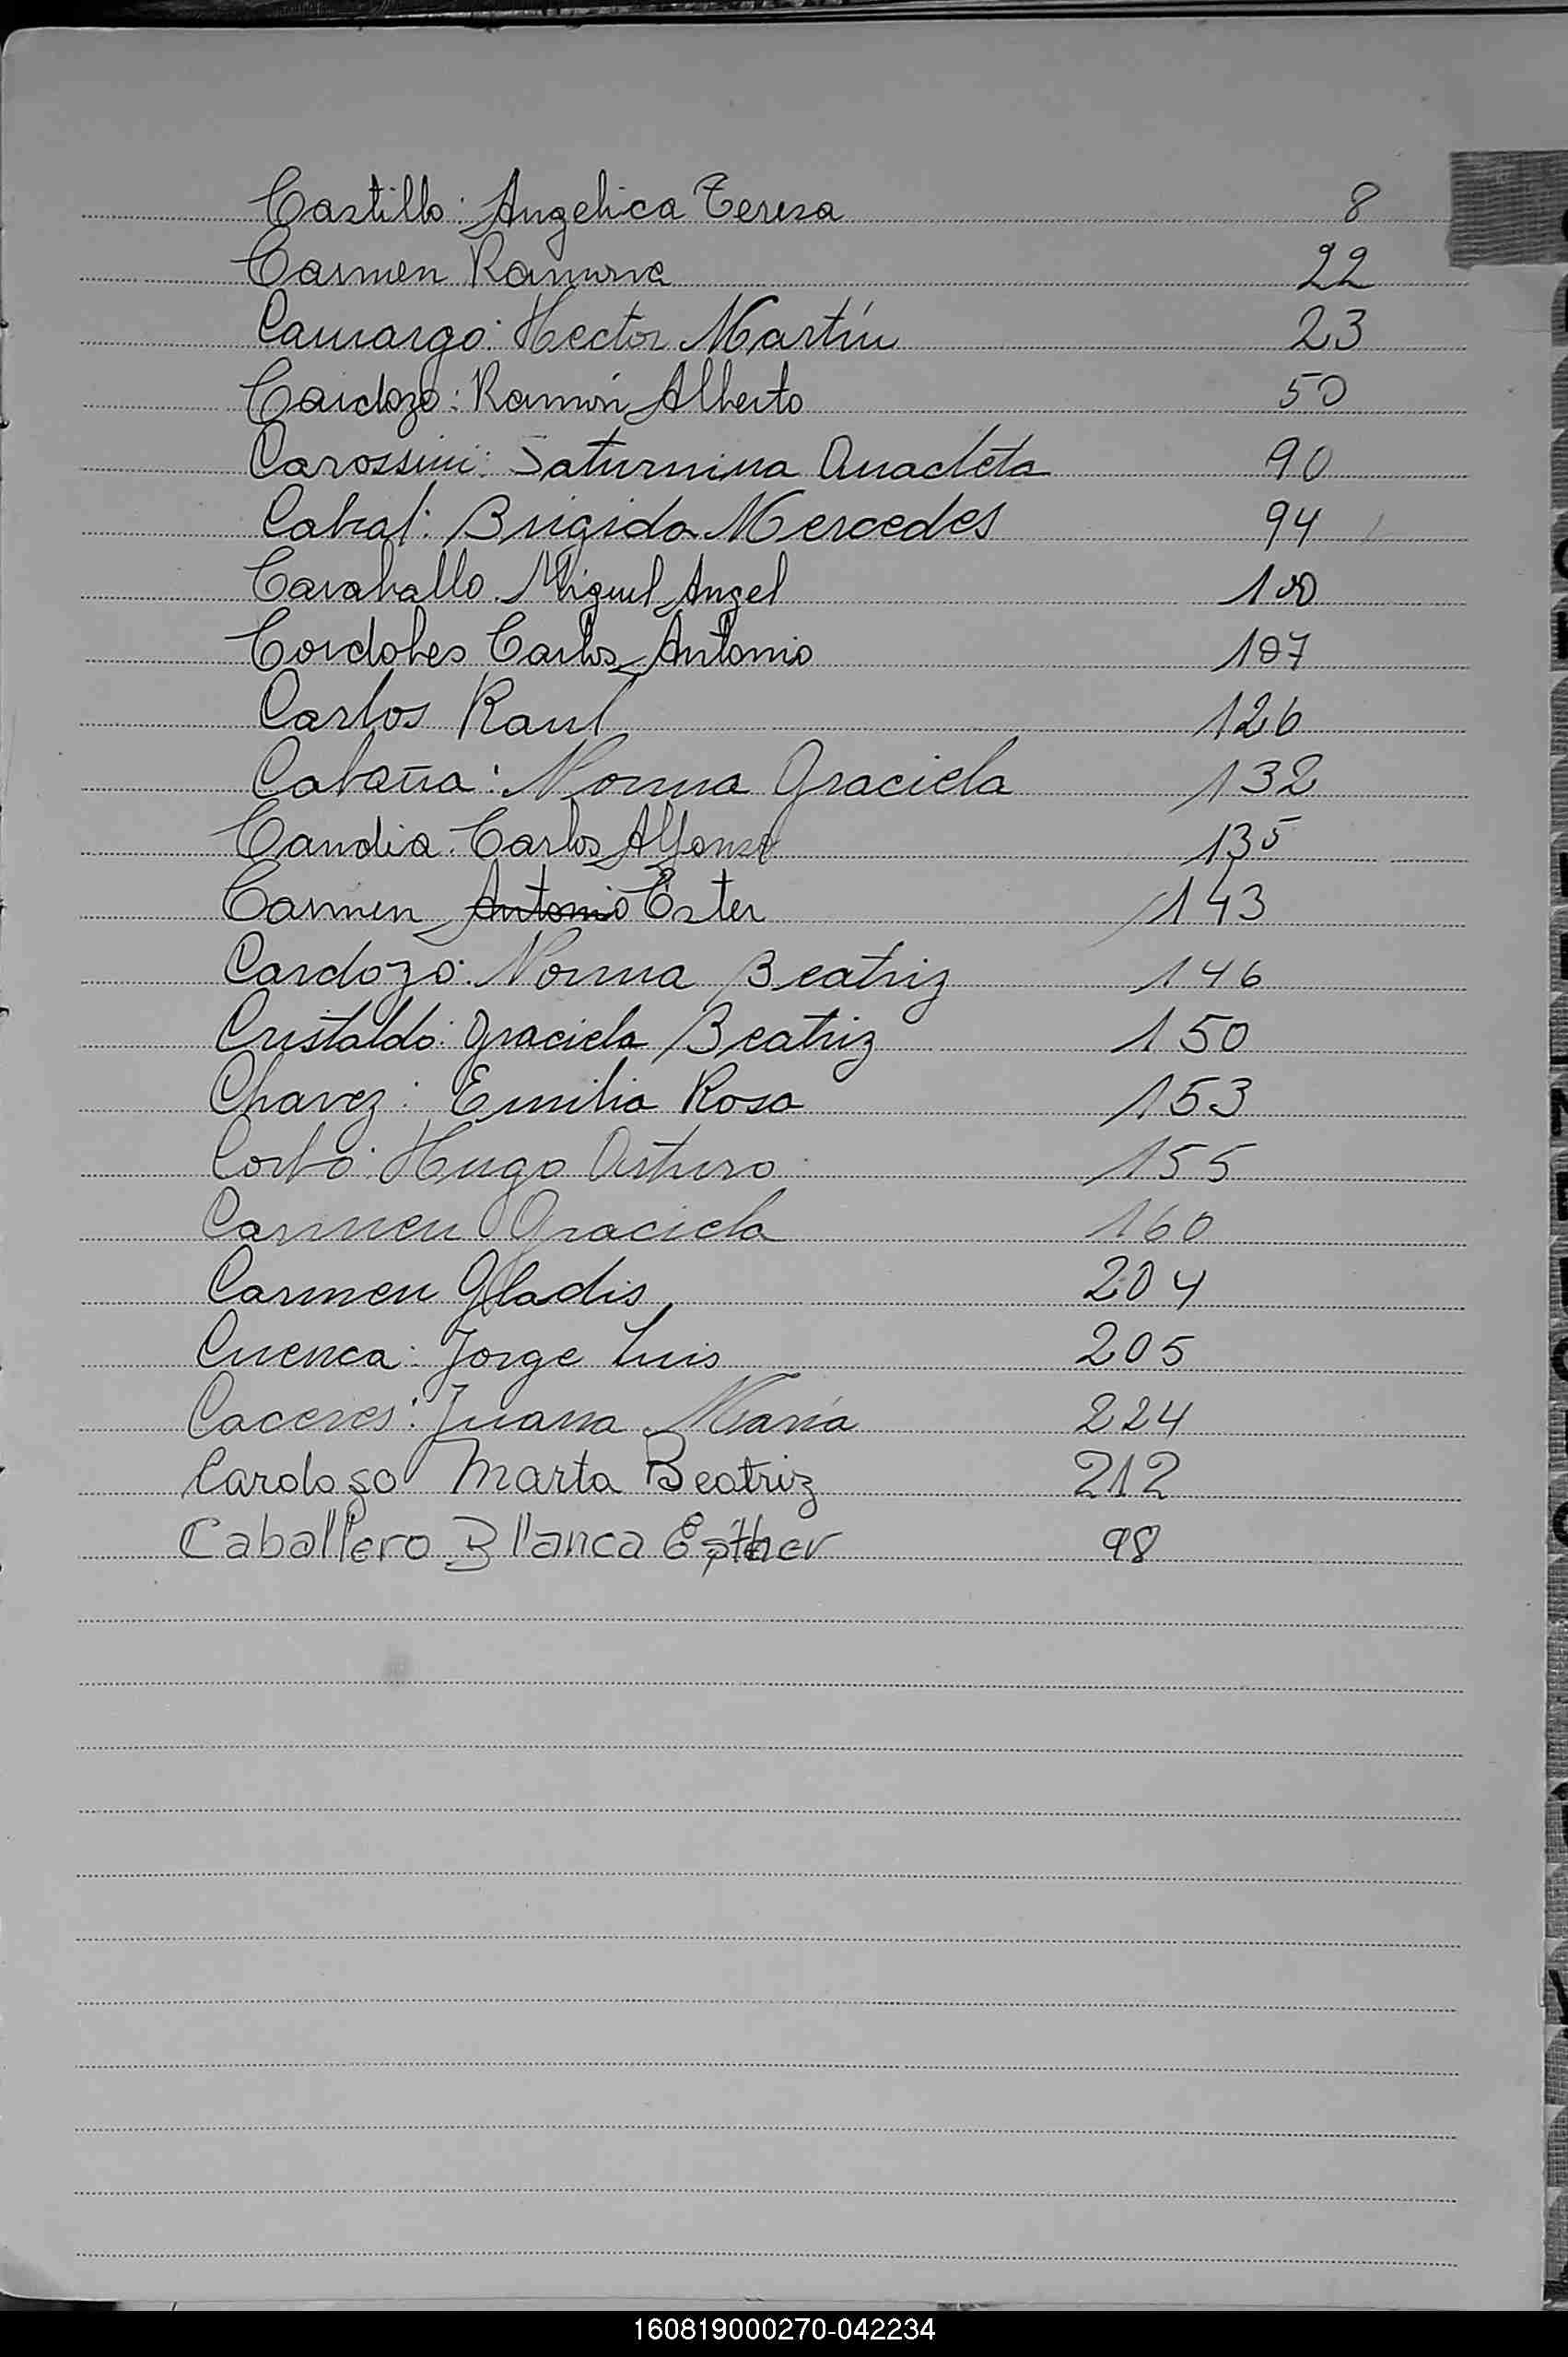 Castillo: Angelica Teresa 8
Carmen Ramona 22
Camargo: Hector Martín 23
Cardozo: Ramón Alberto 50
Carossini: Saturnina Anacleta 90
Cabral: Brigida Mercedes 94
Caraballo. Miguel Angel 100
Cordobes Carlos Antonio 107
Carlos Raul 126
Cabaña: Norma Graciela 132
Candia. Carlos Alfonso 135
Carmen Antonio Ester 143
Cardozo: Norma Beatriz 146
Cristaldo: Graciela Beatriz 150
Chavez: Emilia Rosa 153
Hugo Arturo 155
Carmen Graciela 160
Carmen Gladis 204
Cuenca: Jorge Luis 205
Caceres: Juana María 224
Cardozo Marta Beatriz 212
Caballero Blanca Esther 98
160819000270-042234